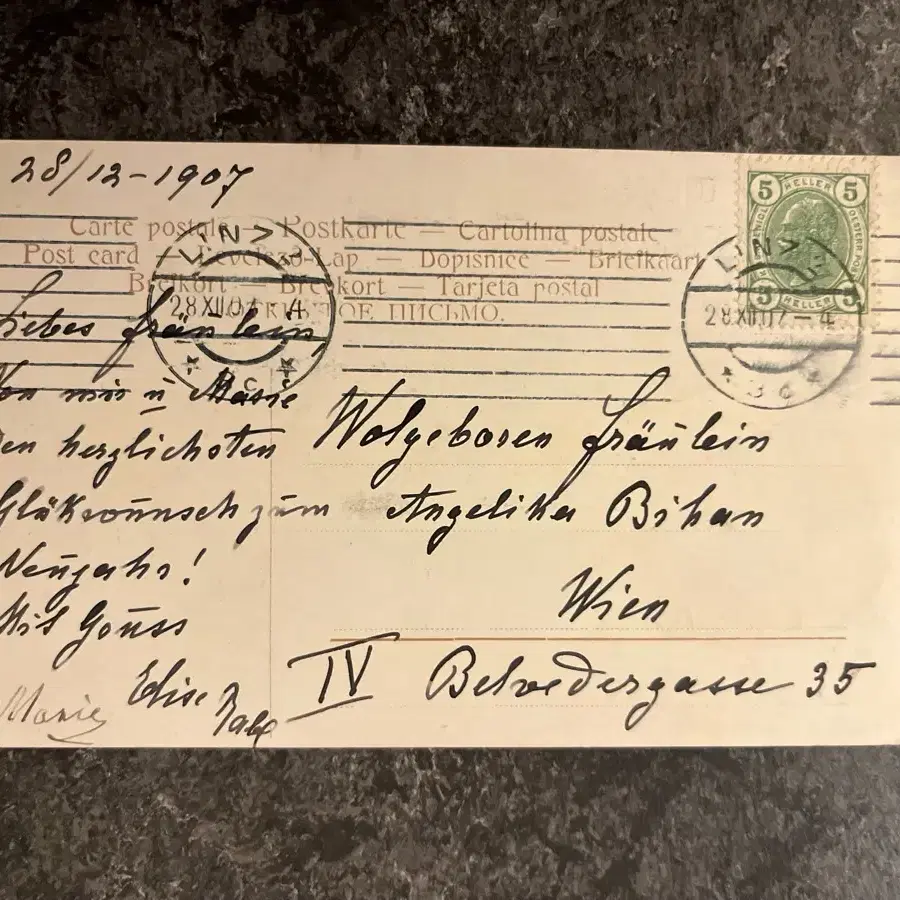 28/12-1907
Carte postale — Postkarte — Cartolina postale
Post card — Levelező-Lap — Dopisnice — Briefkaart
Brefkort — Brevkort — Tarjeta postal
ОТКРЫТОЕ ПИСЬМО.
LINZ
28 XII 07 - 4
* 3c *
LINZ
28 XII 07 - 4
* 3c *
5 HELLER 5
5 HELLER 5
Liebes Fräulein
Von mir u Marie
den herzlichsten
Gläkwunsch zum
Neujahr!
Mit Gruss
Elise
Marie
Wolgeboren Fräulein
Angelika Bihan
Wien
IV Belvedergasse 35